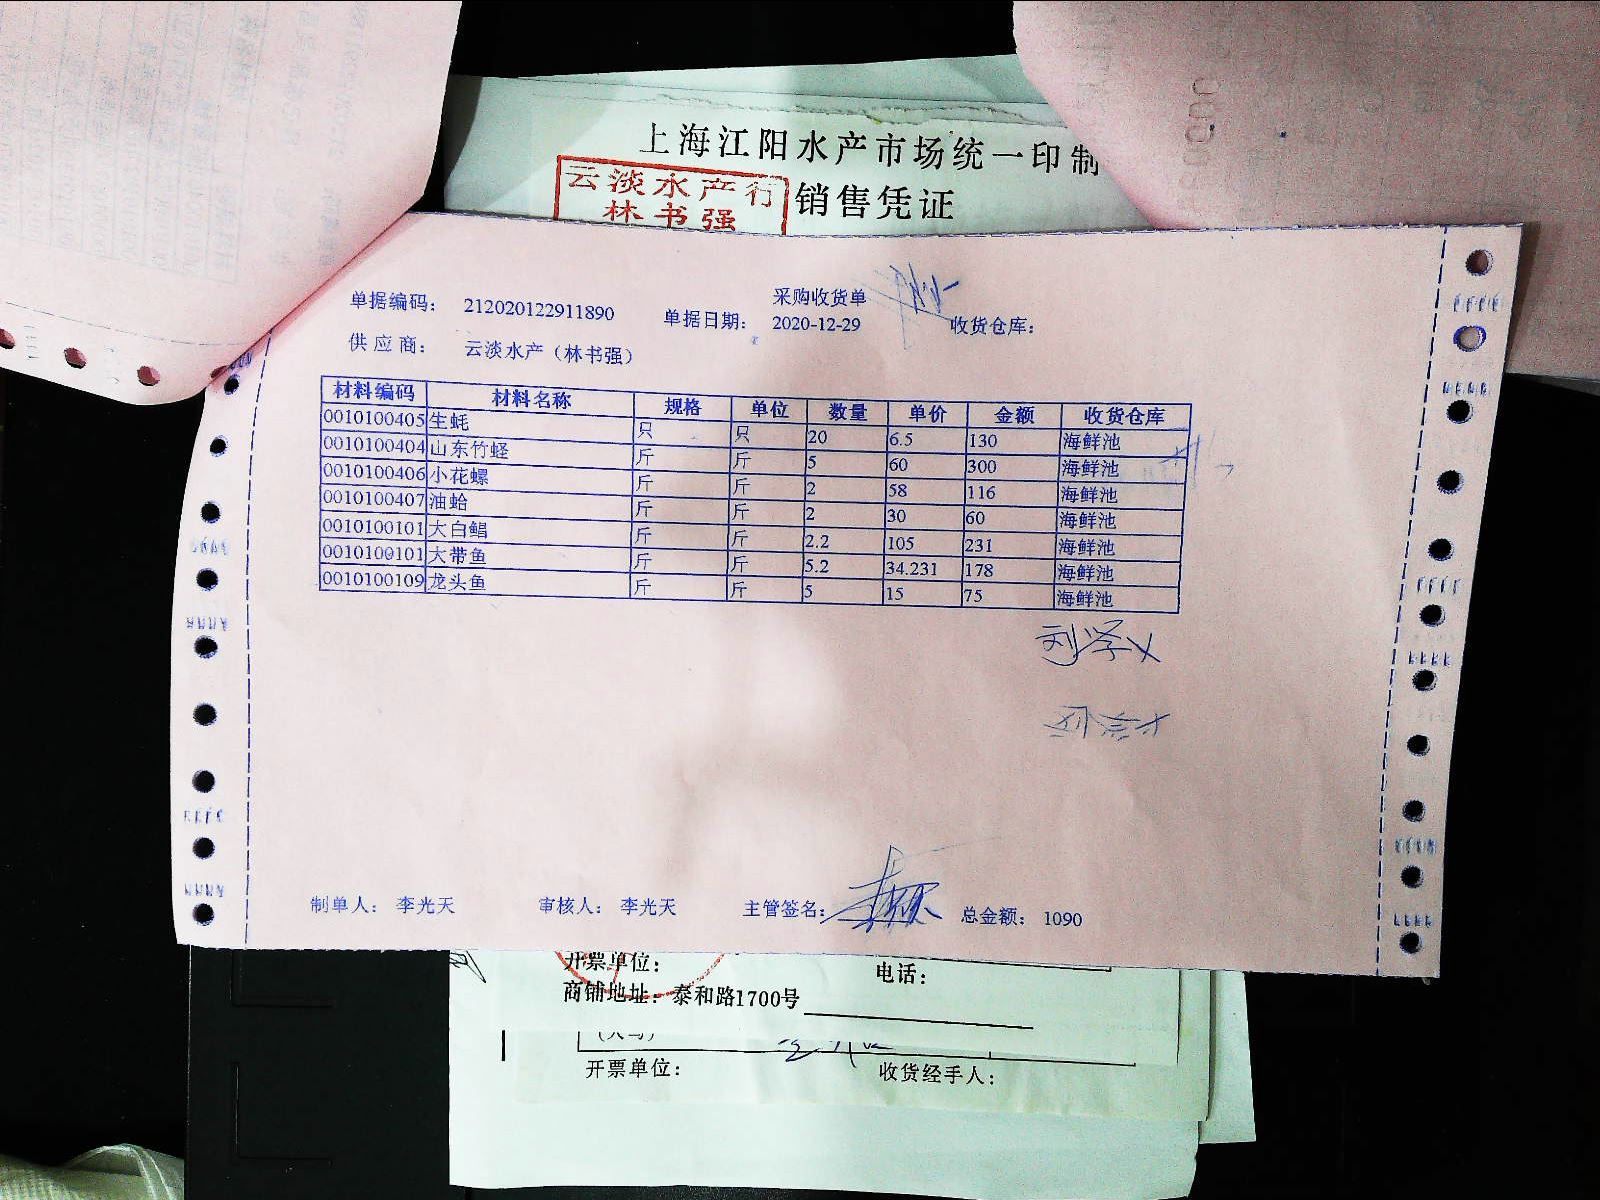 上海江阳水产市场统一印制
云淡水产行
林书强
销售凭证
采购收货单
单据编码: 212020122911890 单据日期: 2020-12-29 收货仓库:
供应商: 云淡水产（林书强）
材料编码 材料名称 规格 单位 数量 单价 金额 收货仓库
0010100405 生蚝 只 只 20 6.5 130 海鲜池
0010100404 山东竹蛏 斤 斤 5 60 300 海鲜池
0010100406 小花螺 斤 斤 2 58 116 海鲜池
0010100407 油蛤 斤 斤 2 30 60 海鲜池
0010100101 大白鲳 斤 斤 2.2 105 231 海鲜池
0010100101 大带鱼 斤 斤 5.2 34.231 178 海鲜池
0010100109 龙头鱼 斤 斤 5 15 75 海鲜池
制单人: 李光天 审核人: 李光天 主管签名: 总金额: 1090
开票单位: 电话:
商铺地址: 泰和路1700号
开票单位: 收货经手人: